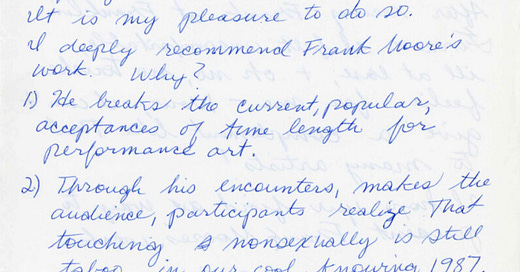 It is my pleasure to do so.
I deeply recommend Frank Moore's
work. Why?
1.) He breaks the current, popular,
acceptances of time length for
performance art.
2) Through his encounters, makes the
audience, participants realize That
touching nonsexually is still
taboo in our cool, knowing 1987.